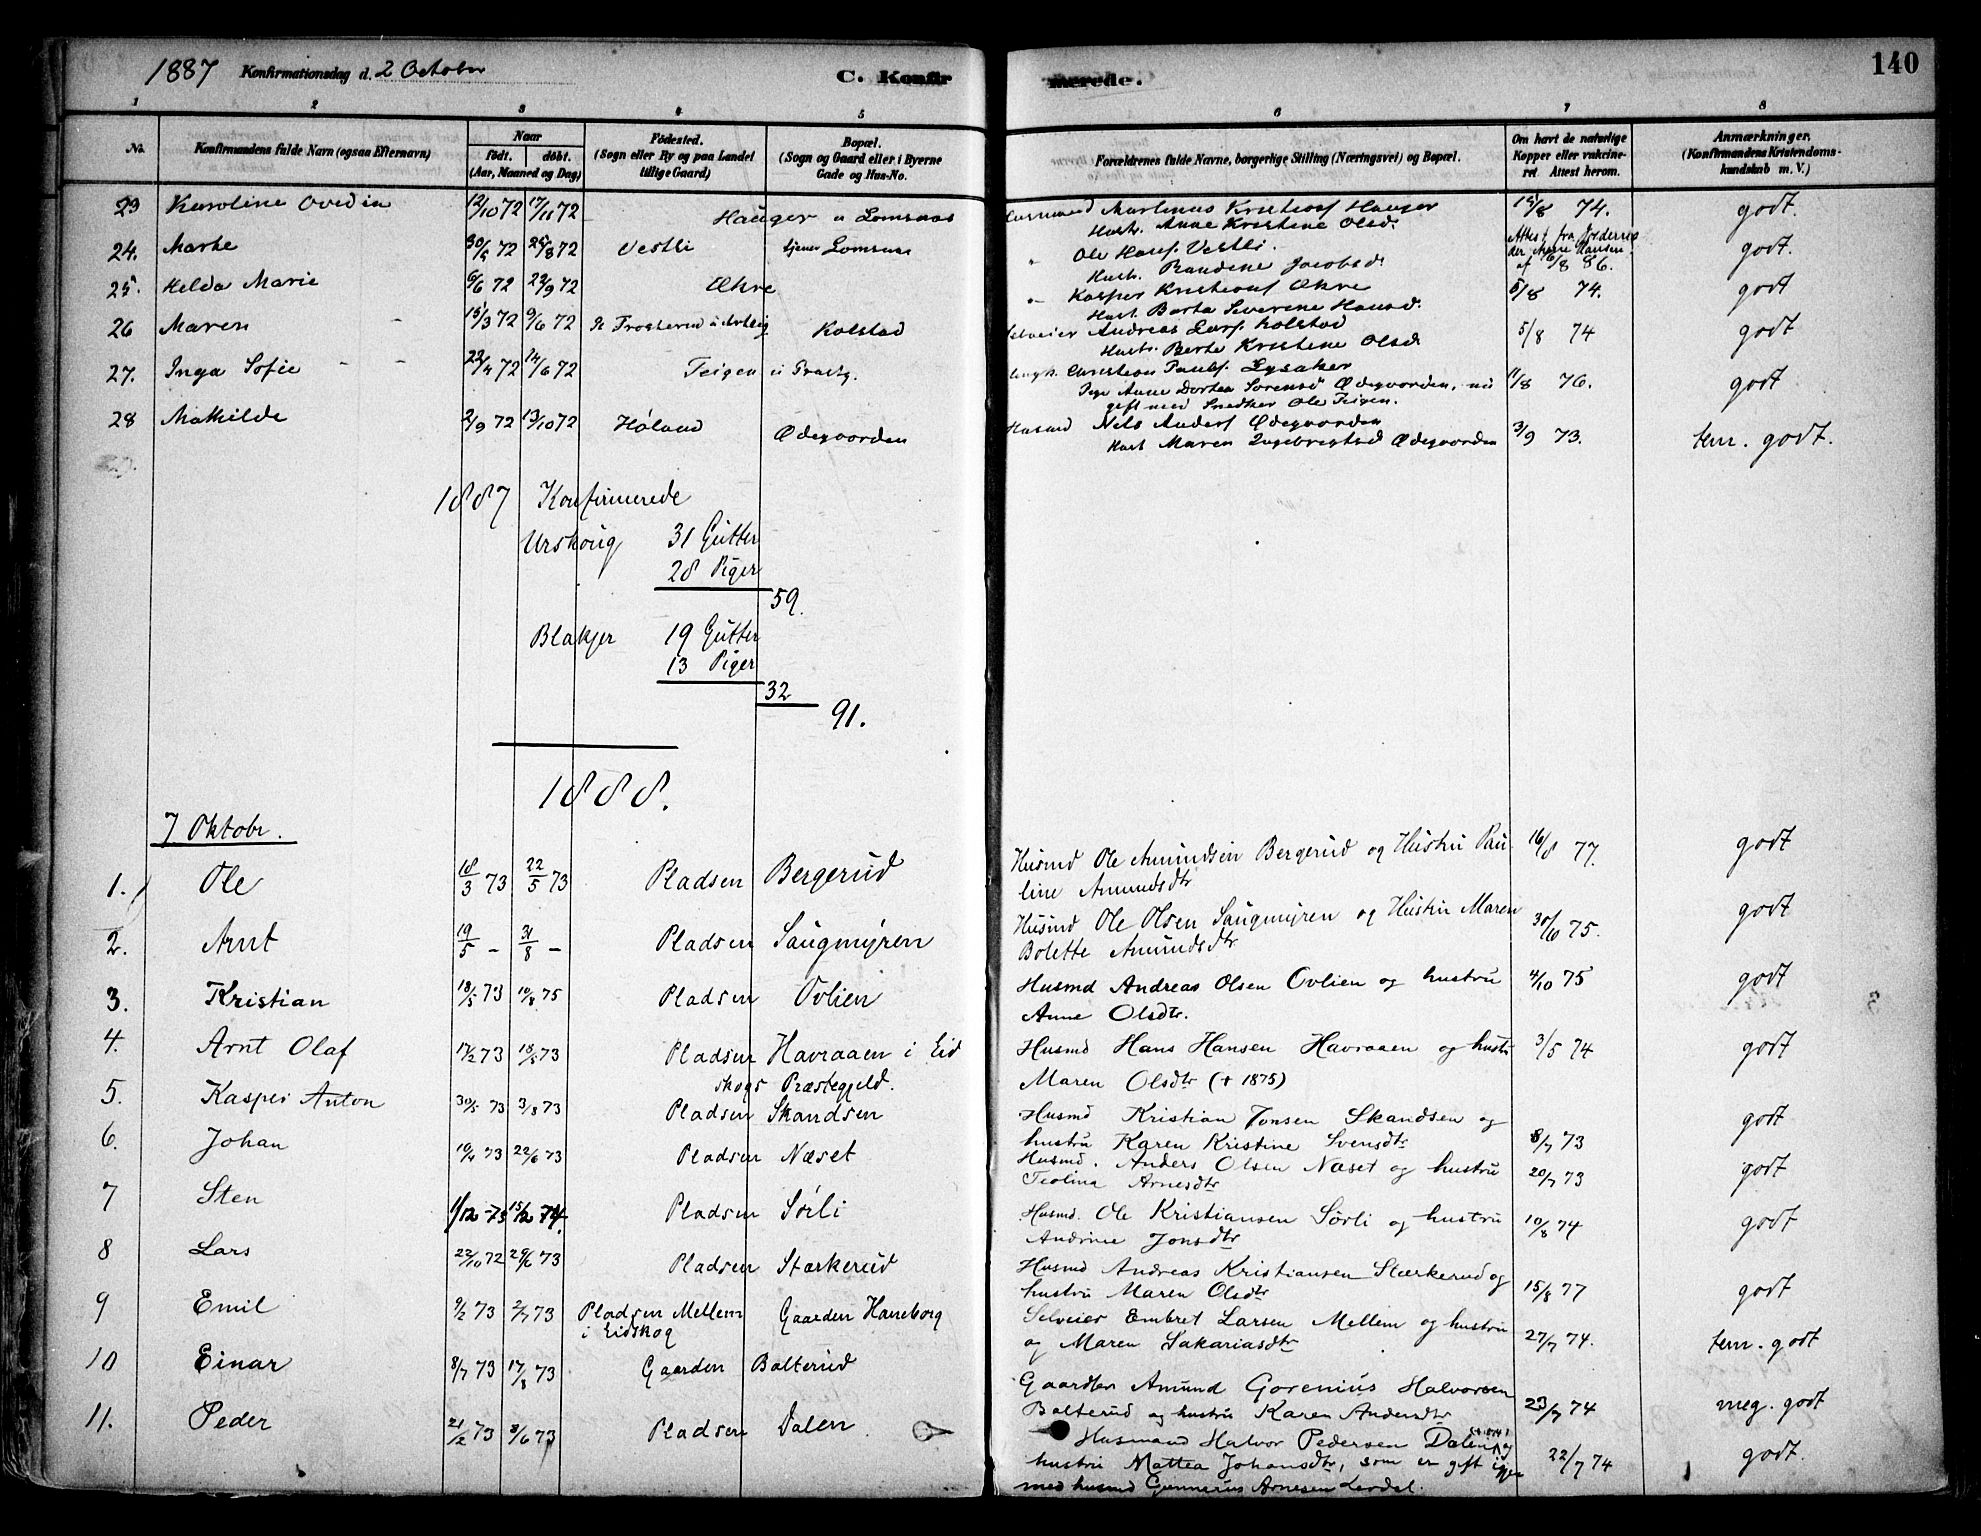 1887 Konfirmationsdag d. 2 October C. Konfirmerede. 140
1 2 3 4 5 6 7 8
No. Konfirmandens fulde Navn (ogsaa Efternavn) Naar født. døbt. (Aar, Maaned og Dag) Fødested. (Sogn eller By og paa Landet tillige Gaard) Bopæl. (Sogn og Gaard eller i Byerne Gade og Hus-No. Forældrenes fulde Navne, borgerlige Stilling (Næringsvei) og Bopæl. Om havt de naturlige Kopper eller vakcineret. Attest herom. Anmærkninger. (Konfirmandens Kristendomskundskab m. V.)
23 Karoline Ovedia 12/10 72 17/11 72 Hauger u Lomsaas Husmand Martinus Kristiansf Hauger 15/8 74. godt.
Hustr. Anne Kristine Olsd.
24. Marthe 30/5 72 25/8 72 Vestli tjener Lomsaas " Ole Hansf. Vestli. godt.
Hustr. Randine Jacobsd. 6/8 86.
25. Helda Marie 6/6 72 22/9 72 Økre " Kasper Kristiansf Økre 5/8 74. godt
Hust. Berta Severene Hansd.
26 Maren 15/3 72 9/6 72 Kolstad Selveier Andreas Larsf. Kolstad 5/8 74 godt
Hustr. Berte Kristine Olsd
27. Inga Sofie 22/4 72 14/6 72 Teigen u Prestg. Ungk. Christian Paulsf. Lysaker 11/8 76. godt
Pige Anne Dortea Sörensd Ødegaarden, nu
gift med Snedker Ole Teigen.
28 Mathilde 2/9 72 13/10 72 Høland Ødegaarden Husmd Nils Andersf Ødegaarden 3/9 73. tem. godt.
Hust Maren Ingebregtsd Ødegaarden
1887 Konfirmerede
Urskoug 31 Gutter
28 Piger
59.
Blakjer 19 Gutter
13 Piger
32
91.
1888.
7 Oktobr.
1. Ole 18/3 73 22/5 73 Pladsen Bergerud Husmd Ole Amundsen Bergerud og Hustru Pau- 16/8 77. godt
line Amundsdtr
2. Arnt 19/5 – 31/8 – Pladsen Saugmyren Husmd Ole Olsen Saugmyren og Hustru Maren 30/6 75. godt
Bolette Amundsdtr
3. Kristian 18/5 73 10/8 75 Pladsen Ovlien Husmd Andreas Olsen Ovlien og hustru 4/10 75 godt
Anne Olsdtr.
4. Arnt Olaf 17/2 73 18/5 73 Pladsen Havraaen i Eid Husmd Hans Hansen Havraaen og hustr 3/5 74 godt
skogs Præstegjeld. Maren Olsdtr († 1875)
5. Kasper Anton 30/5 73 3/8 73 Pladsen Skandsen Husmd Kristian Jonsen Skandsen og godt
hustru Karen Kristine Svensdtr 8/7 73
6. Johan 19/4 73 22/6 73 Pladsen Næset Husmd. Anders Olsen Næset og hustru 20/7 73 godt
Teolina Arnesdtr
7 Sten 1/12 73 15/2 74. Pladsen Sørli Husmd. Ole Kristiansen Sørli og hustru 10/8 74 godt
Andrine Jonsdtr
8 Lars 22/10 72 29/6 73 Pladsen Stærkerud Husmd Andreas Kristiansen Stærkerud og godt
hustru Maren Olsdtr 15/8 77
9 Emil 9/2 73 2/7 73 Pladsen Mellem Gaarden Haneborg Selveier Embret Larsen Mellem og hustru
i Eidskog og Maren Sakariasdtr 27/7 74. tem. godt
10 Einar 8/7 73 17/8 73 Gaarden Bolterud Gaardbr Amund Gorenius Halvorsen
Bolterud og hustru Karen Andersdtr 23/7 74 meg. godt
11. Peder 21/2 73 8/6 73 Pladsen Dalen Husmand Halvor Pedersen Dalen og
hustru Mattea Johansdtr, som er gift igjen 22/7 74 godt.
med husmd Gunnerius Arnesen Lerdal.